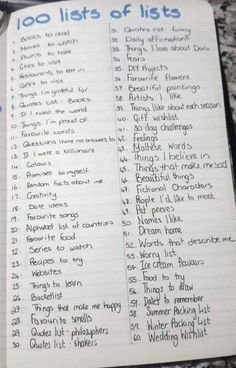 100 lists of lists
1. Books to read
2. Movies to watch
3. Photos to take
4. Cities to visit
5. Restaurants to eat in
6. Cities to visit
7. Things I'm grateful for
8. Quotes list - Books
9. If I ruled the world
10. Things I'm proud of
11. Favourite words
12. Questions I have no answers to
13. If I were a billionaire
14. Colours
15. Promises to myself
16. Random facts about me
17. Creativity
18. Date ideas
19. Favourite songs
20. Alphabet list of countries
21. Favourite food
22. Series to watch
23. Recipes to try
24. Websites
25. Things to learn
26. Bucketlist
27. Things that make me happy
28. Favourite smells
29. Quotes list - philosophers
30. Quotes list -
31. Quotes list - funny
32. Daily affirmations
33. Things I love about
34. Fears
35. DIY Projects
36. Favourite flowers
37. Beautiful paintings
38. Artists I
39. Things I like about each season
40. Gift wishlist
41. 30 day challenges
42. Feelings
43. Maltese words
44. Things I believe in
45. Things that make me sad
46. Beautiful things
47. Fictional Characters
48. People I'd like to meet
49. Pet peeves
50. Names I like
51. Dream home
52. Words that describe me
53. Worry list
54. Ice cream flavours
55. Food to try
56. Things to draw
57. Dates to remember
58. Summer Packing List
59. Winter Packing List
60. Wedding Wishlist